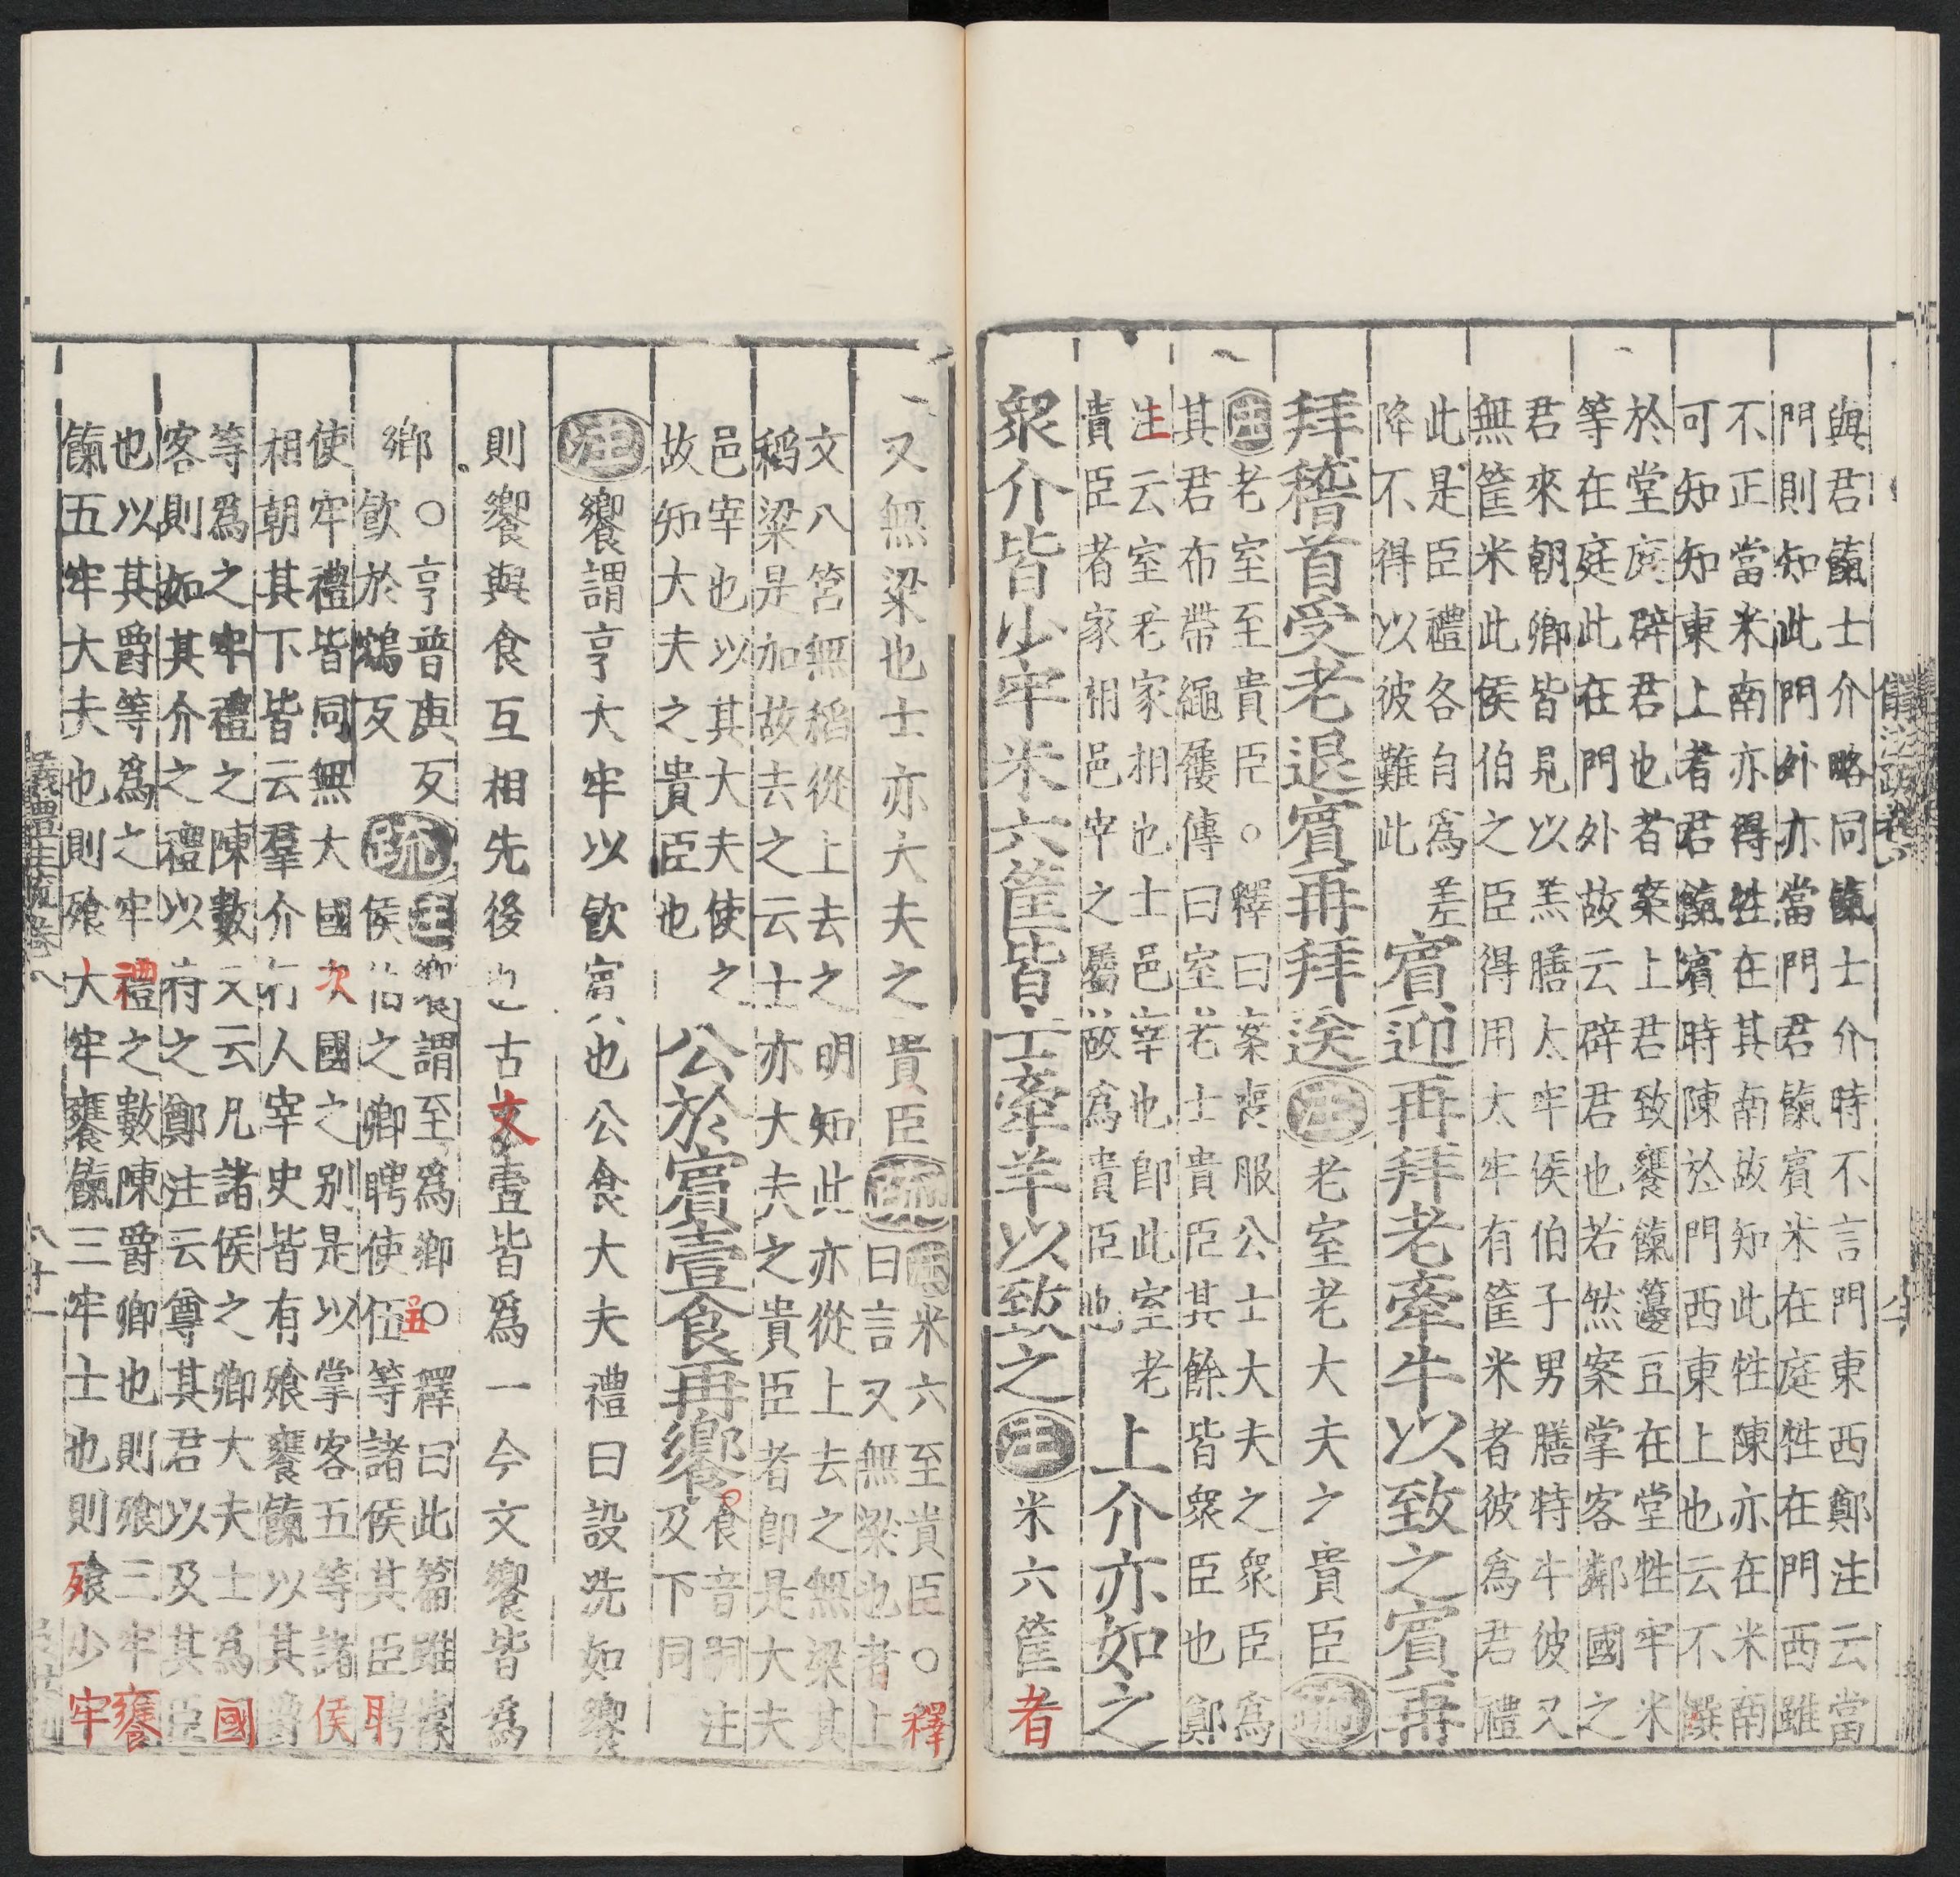 與君餼士介略同餼士介時不言門東西鄭注云當
門則知此門外亦當門君餼賓米在庭牲在門西雖
不正當米南亦得牲在其南故知此牲陳亦在米南
可知知東上者君餼賓時陳於門西東上也云不饌
於堂庭辟君也者案上君致饔餼籩豆在堂牲牢米
等在庭此在門外故云辟君也若然案掌客鄰國之
君來朝卿皆見以羔膳太牢侯伯子男膳特牛彼又
無筐米此侯伯之臣得用太牢有筐米者彼爲君禮
此是臣禮各自爲差
降不得以彼難此
賓迎再拜老牽牛以致之賓再
拜稽首受老退賓再拜送注老室老大夫之貴臣疏
注老室至貴臣○釋曰案喪服公士大夫之衆臣爲
其君布帶繩屨傳曰室老士貴臣其餘皆衆臣也鄭
注云室老家相也士邑宰也即此室老
貴臣者家相邑宰之屬故爲貴臣也
上介亦如之
衆介皆少牢米六筐皆士牽羊以致之注米六筐者
又無粱也士亦大夫之貴臣疏
注米六至貴臣○釋
曰言又無粱也者上
文八筥無稻從上去之明知此亦從上去之無粱其
稻粱是加故去之云士亦大夫之貴臣者即是大夫
邑宰也以其大夫使之
故知大夫之貴臣也
公於賓壹食再饗
○食音嗣注
及下同
注饗謂亨大牢以飮賓也公食大夫禮曰設洗如饗
則饗與食互相先後也古文壹皆爲一今文饗皆爲
鄕
○亨普庚反
飮於鴆反
疏
注饗謂至爲鄕○釋曰此篇雖據
侯伯之卿聘使五等諸侯其臣聘
使牢禮皆同無大國次國之别是以掌客五等諸侯
相朝其下皆云羣介行人宰史皆有飱饔餼以其爵
等爲之牢禮之陳數又云凡諸侯之卿大夫士爲國
客則如其介之禮以待之鄭注云尊其君以及其臣
也以其爵等爲之牢禮之數陳爵卿也則飱三牢饔
餼五牢大夫也則飱大牢饔餼三牢士也則飱少牢